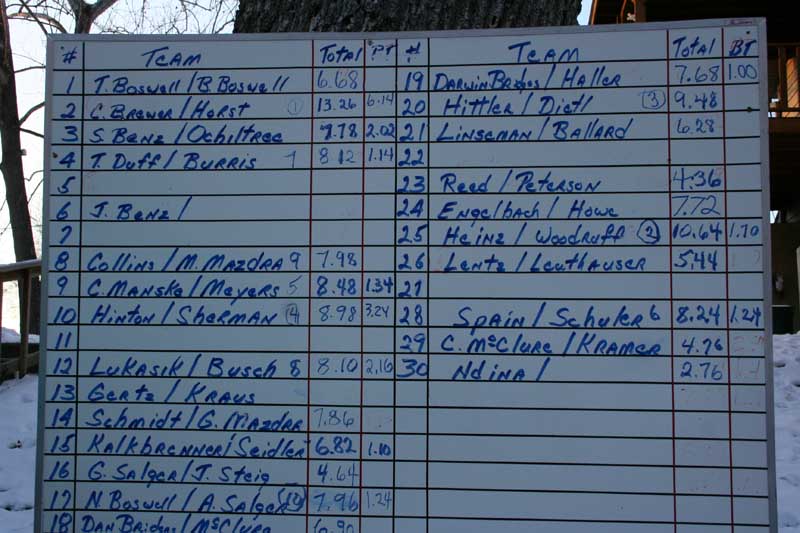 # TEAM Total PT
1 T. Boswell / B. Boswell 6.68
2 C. Brewer / Horst 1 13.26 6.14
3 S. Benz / Ochiltree 7.78 2.02
4 T. Duff / Burris 7 8.12 1.14
5
6 J. Benz /
7
8 Collins / M. Mazdra 9 7.98
9 C. Manske / Meyers 5 8.48 1.34
10 Hinton / Sherman 4 8.98 3.24
11
12 Lukasik / Busch 8 8.10 2.16
13 Gertz / Kraus
14 Schmidt / G. Mazdra 7.86
15 Kalkbrenner / Seidler 6.82 1.10
16 G. Salger / J. Steig 4.64
17 N. Boswell / A. Salger 10 7.96 1.24
18 Dan Bridges / McClure 6.90
# TEAM Total BT
19 Darwin Bridges / Haller 7.68 1.00
20 Hittler / Dietl 3 9.48
21 Linseman / Ballard 6.28
22
23 Reed / Peterson 4.36
24 Engelbach / Howe 7.72
25 Heinz / Woodruff 2 10.64 1.70
26 Lentz / Leuthauser 5.44
27
28 Spain / Schuler 6 8.24 1.24
29 C. McClure / Kramer 4.76
30 Ndina / 2.76